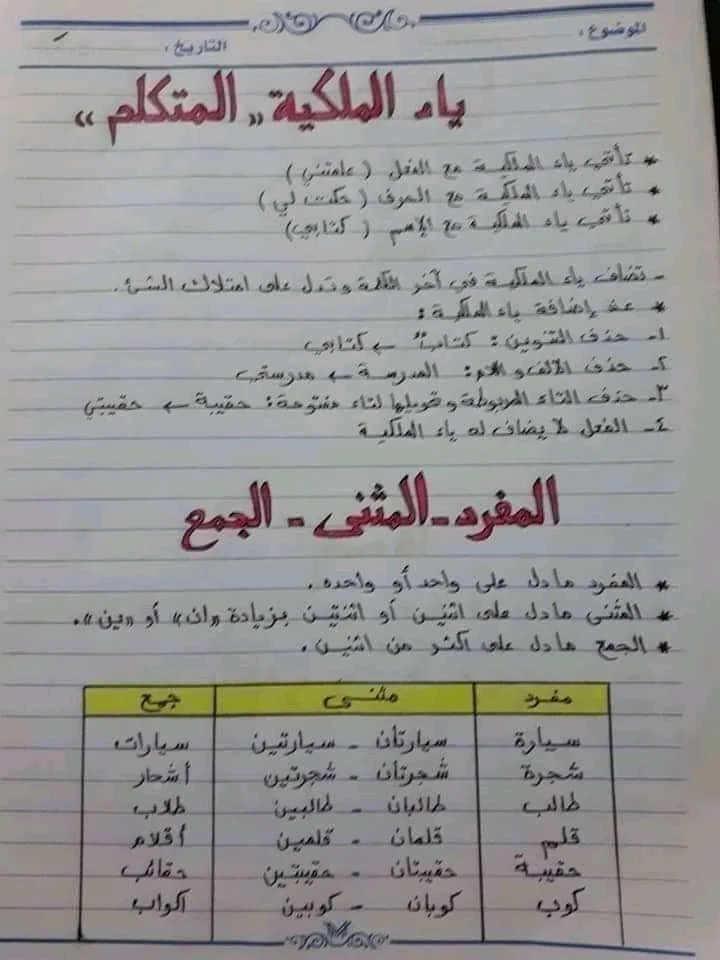 الموضوع:
التاريخ:
ياء الملكية "المتكلم"
* تأتي ياء الملكية مع الفعل (علمتني)
* تأتي ياء الملكية مع الحرف (حكت لي)
* تأتي ياء الملكية مع الإسم (كتابي)
- تضاف ياء الملكية في آخر الكلمة وتدل على امتلاك الشئ.
* عند إضافة ياء الملكية:
١- حذف التنوين: كتابٌ ← كتابي
٢- حذف الألف و اللام: المدرسة ← مدرستي
٣- حذف التاء المربوطة وتحويلها لتاء مفتوحة: حقيبة ← حقيبتي
٤- الفعل لا يضاف له ياء الملكية
المفرد - المثنى - الجمع
* المفرد مادل على واحد أو واحده.
* المثنى مادل على اثنين أو اثنتين بزيادة «ان» أو «ين».
* الجمع مادل على أكثر من اثنين.
مفرد مثنى جمع
سيارة سيارتان - سيارتين سيارات
شجرة شجرتان - شجرتين أشجار
طالب طالبان - طالبين طلاب
قلم قلمان - قلمين أقلام
حقيبة حقيبتان - حقيبتين حقائب
كوب كوبان - كوبين أكواب